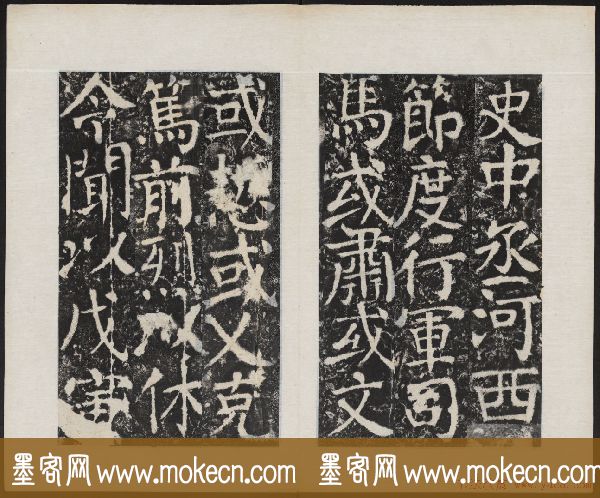 史中丞河西
節度行軍司
馬或肅或文
或悊或乂克
篤前烈以休
令聞以戊寅
墨客网 www.mokecn.com 墨客网 www.mokecn.com